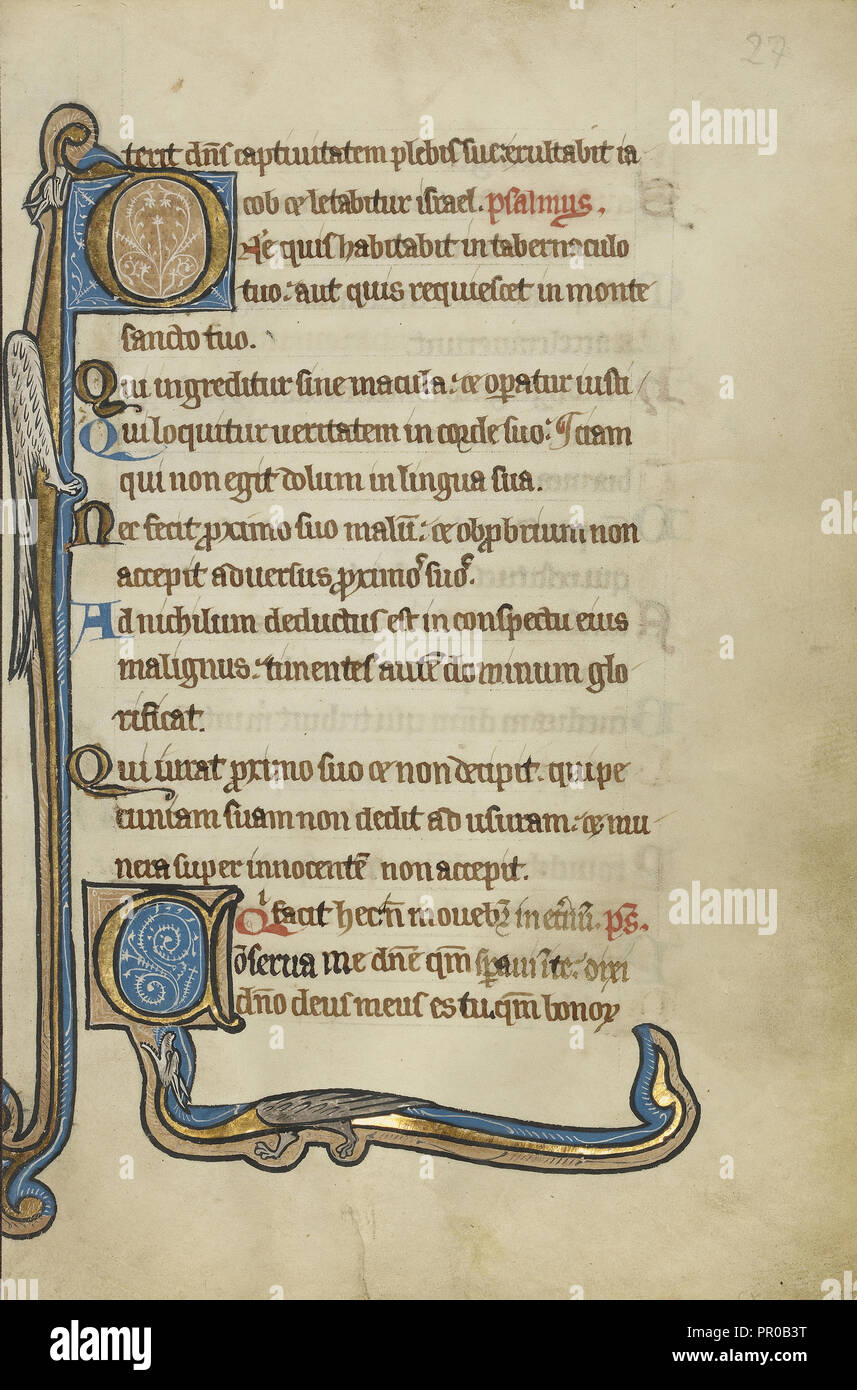 27
terit dñs captiuitatem plebis sue exultabit ia
cob ⁊ letabitur israel. psalmus.
Dñe quis habitabit in tabernaculo
tuo: aut quis requiescet in monte
sancto tuo.
Qui ingreditur sine macula: ⁊ opatur iusti
Qui loquitur ueritatem in corde suo: ¶ ciam
qui non egit dolum in lingua sua.
Nec fecit proximo suo malū: ⁊ obprobrium non
accepit aduersus proximos suos.
Ad nichilum deductus est in conspectu eius
malignus: timentes autē dominum glo
rificat.
Qui iurat proximo suo ⁊ non decipit. qui pe
cuniam suam non dedit ad usuram: ⁊ mu
nera super innocentē non accepit.
Qi facit hec ñ mouebit in etnū. ps.
Conserua me dñe qm speraui in te: dixi
dño deus meus es tu. qm bonoꝝ
alamy
alamy
Image ID: PR0B3T
www.alamy.com